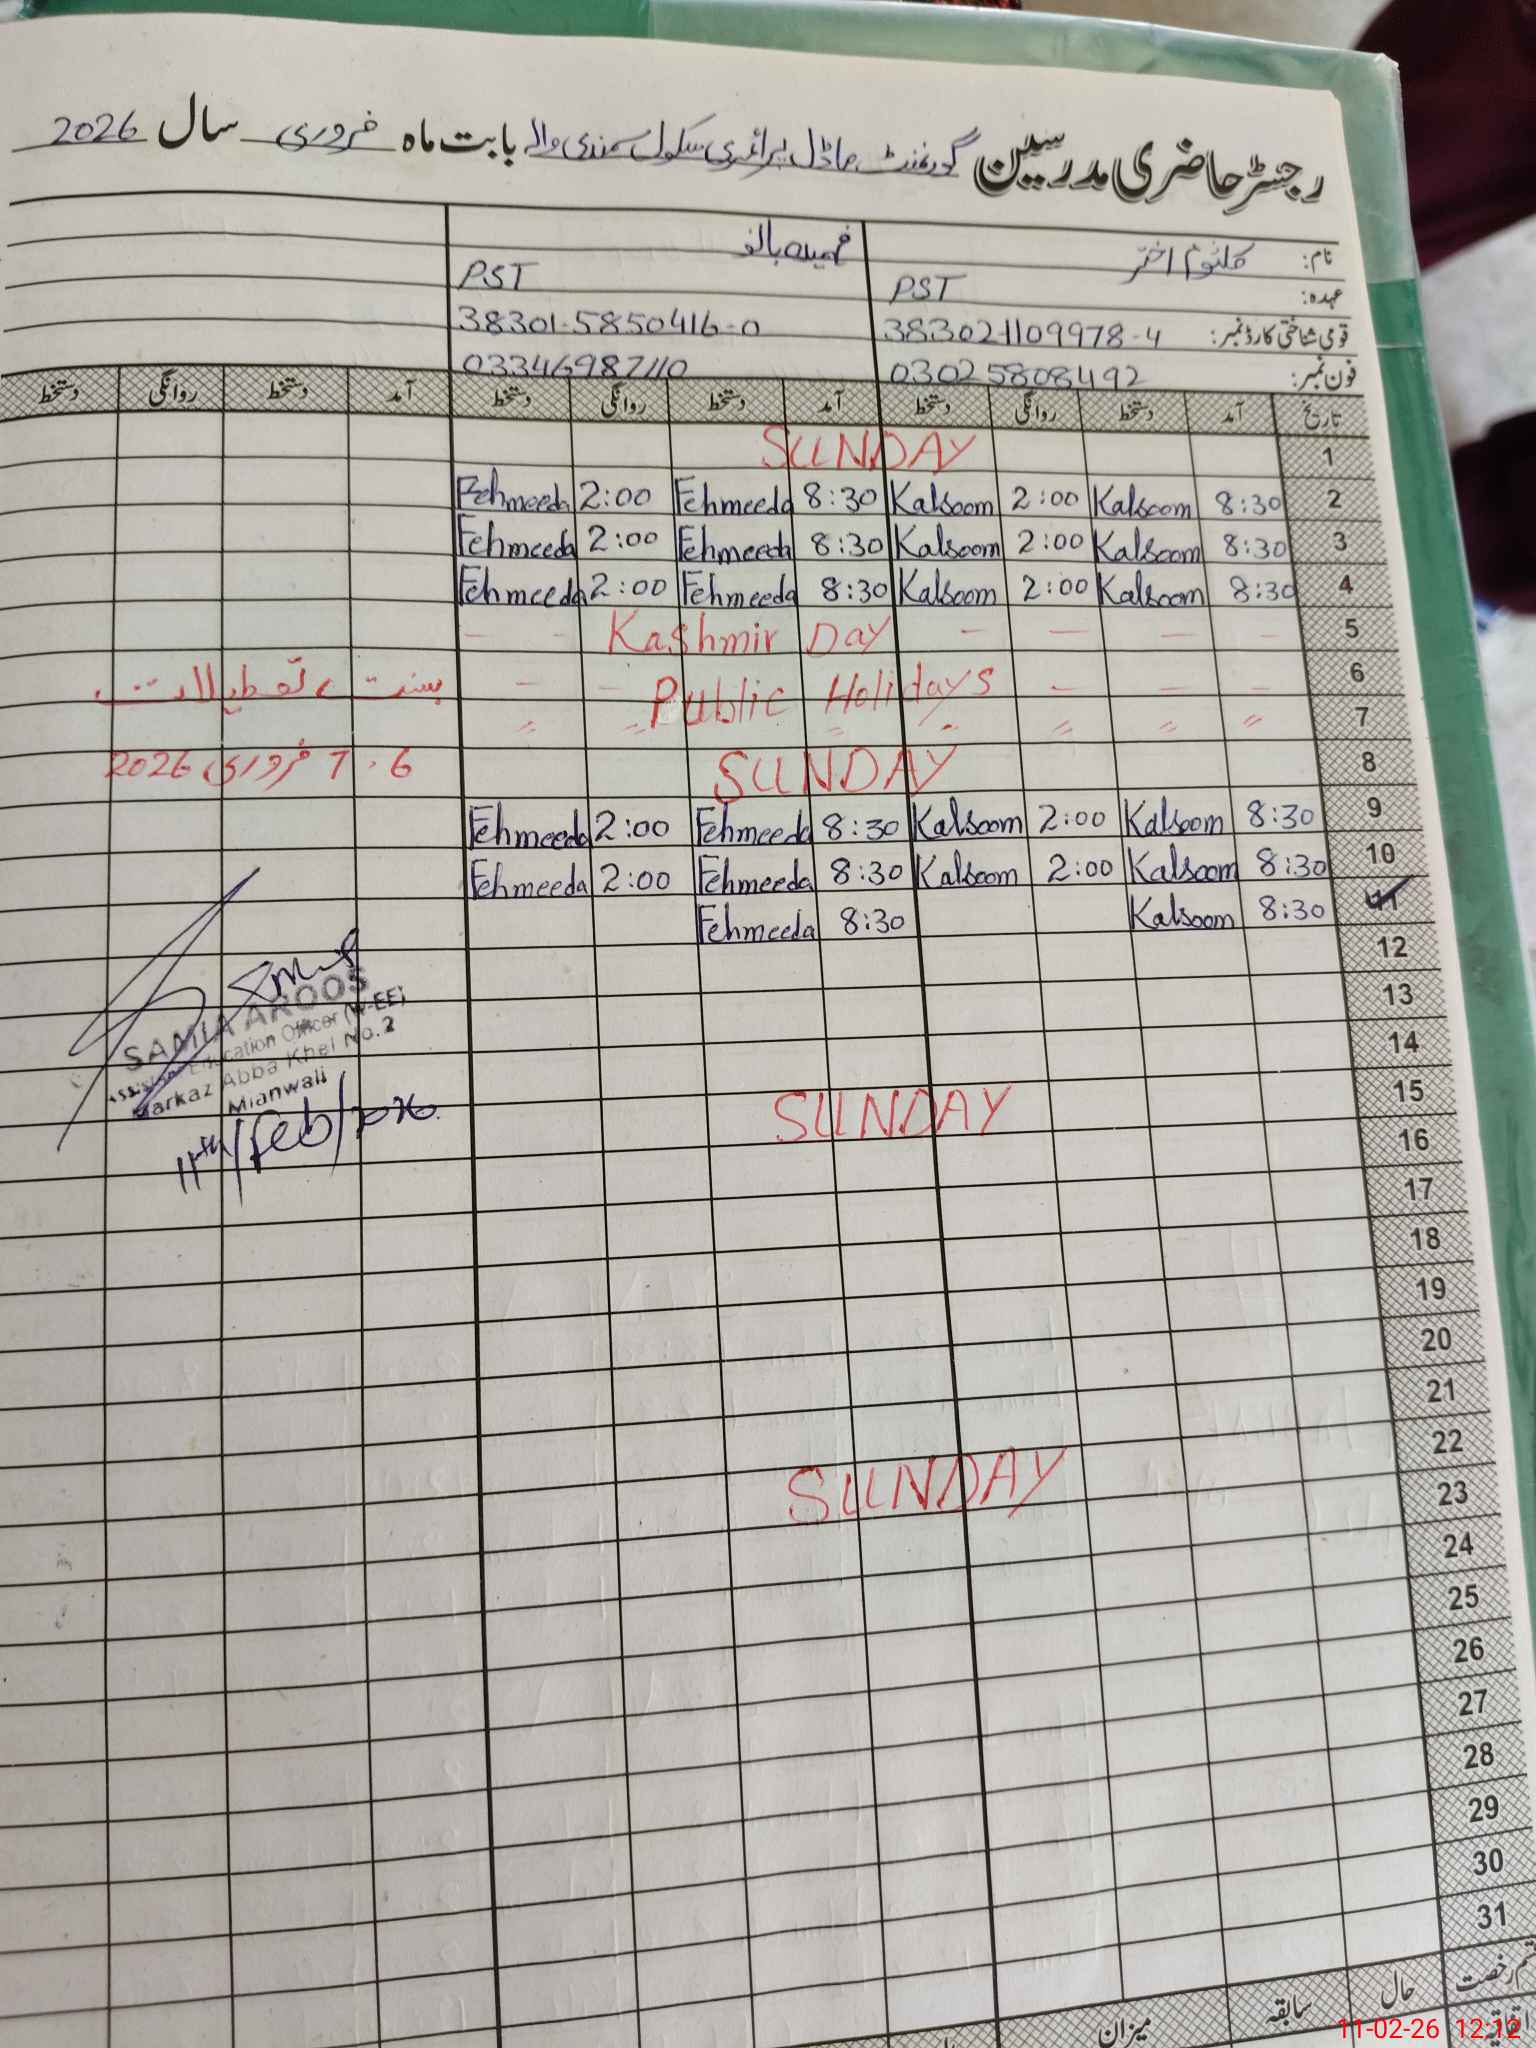 رجسٹر حاضری مدرسین گورنمنٹ ماڈل پرائمری سکول سمندی والے بابت ماہ فروری سال 2026
نام: کلثوم اختر فہمیدہ بانو
عہدہ: PST PST
قومی شناختی کارڈ نمبر: 383021109978-4 38301-5850416-0
فون نمبر: 03025808492 03346987110
تاریخ آمد دستخط روانگی دستخط آمد دستخط روانگی دستخط آمد دستخط روانگی دستخط
1 SUNDAY
2 8:30 Kalsoom 2:00 Kalsoom 8:30 Fehmeeda 2:00 Fehmeeda
3 8:30 Kalsoom 2:00 Kalsoom 8:30 Fehmeeda 2:00 Fehmeeda
4 8:30 Kalsoom 2:00 Kalsoom 8:30 Fehmeeda 2:00 Fehmeeda
5 — — — — Kashmir Day — —
6 — — — Public Holidays — — بسنت تعطیلات
7 〃 〃 〃 〃 〃 〃 〃
8 SUNDAY 6 . 7 فروری 2026
9 8:30 Kalsoom 2:00 Kalsoom 8:30 Fehmeeda 2:00 Fehmeeda
10 8:30 Kalsoom 2:00 Kalsoom 8:30 Fehmeeda 2:00 Fehmeeda
11 8:30 Kalsoom 8:30 Fehmeeda
12
13
14
15 SUNDAY
16
17
18
19
20
21
22 SUNDAY
23
24
25
26
27
28
29
30
31
SAMIA AROOS
Assistant Education Officer (W-EE)
Markaz Abba Khel No.2
Mianwali
11th/Feb/2026
قسم رخصت حال سابقہ میزان
اتفاقیہ
11-02-26 12:12